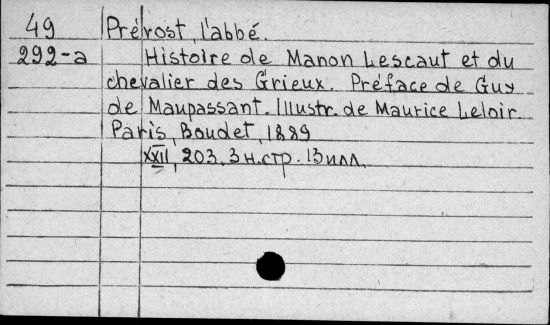 49 Prévost, l'abbé.
292-a Histoire de Manon Lescaut et du
chevalier des Grieux. Préface de Guy
de Maupassant. Illustr. de Maurice Leloir.
Paris, Boudet, 1889
XXII, 203, 3 н.стр. 13 илл.